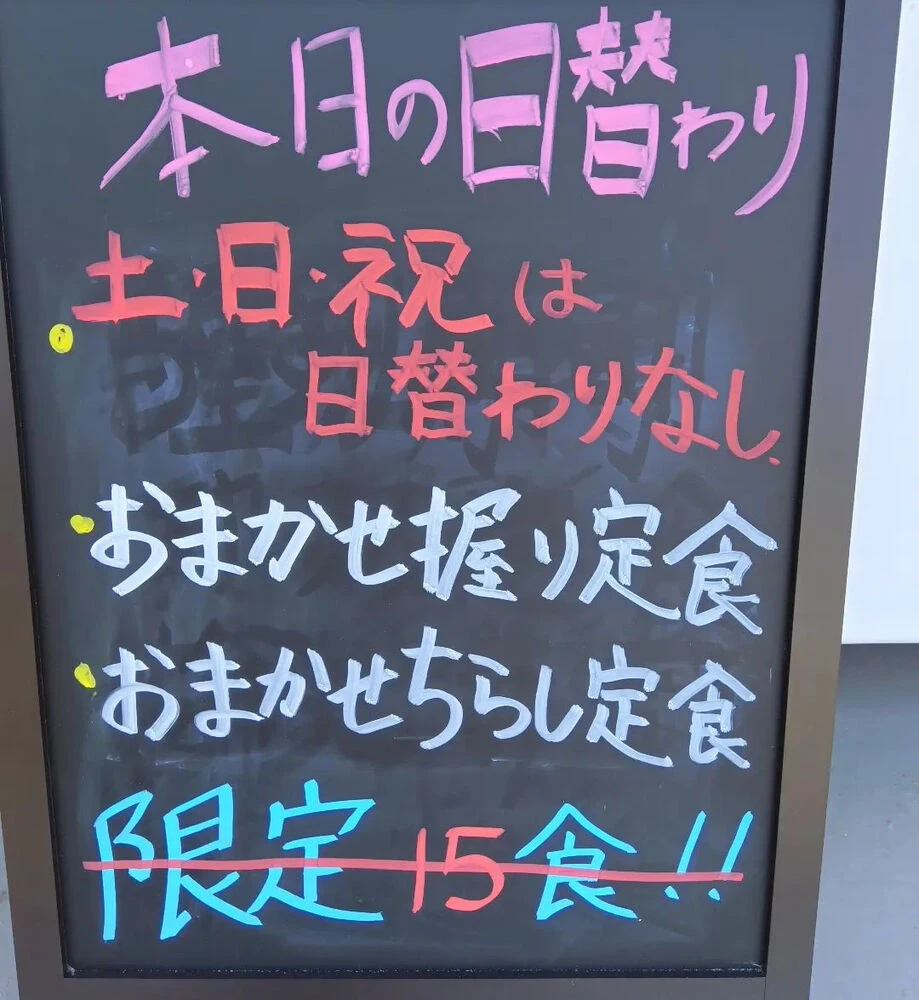 本日の日替わり
土・日・祝は
日替わりなし.
おまかせ握り定食
おまかせちらし定食
限定15食!!